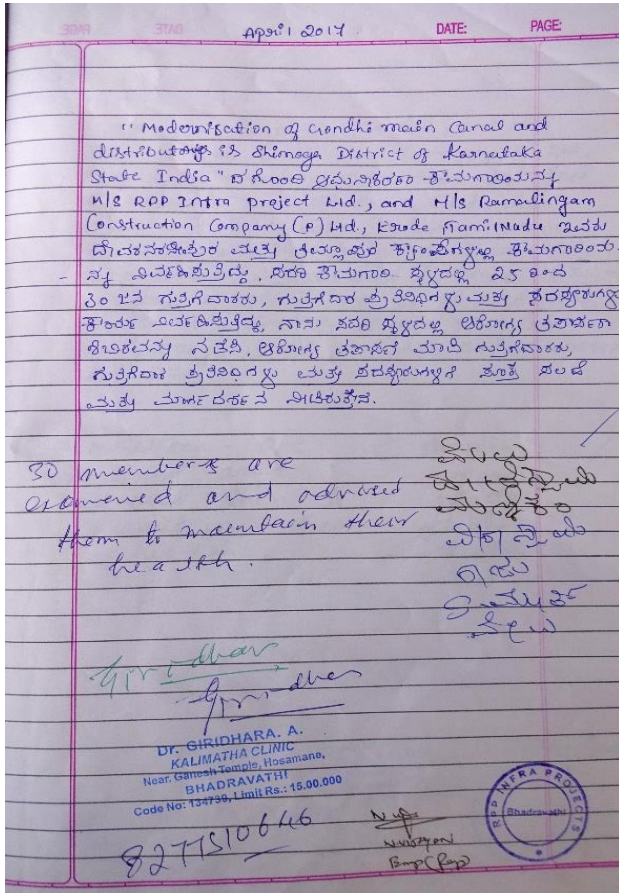 April 2017 DATE: PAGE:
"Modernisation of Gondhi main Canal and
distributorys is Shimoga District of Karnataka
State India" ದ ಗೊಂದಿ ಆಧುನಿಕರಣ ಕಾಮಗಾರಿಯನ್ನು
M/S RPP Infra project Ltd., and M/S Ramalingam
Construction Company (P) Ltd., Erode Tamil Nadu ಇವರು
ಮತ್ತು ಕಾಮಗಾರಿಯ-
ನ್ನು ನಿರ್ವಹಿಸುತ್ತಿದ್ದು, ಸದರಿ ಕಾಮಗಾರಿ ಸ್ಥಳದಲ್ಲಿ 25 ರಿಂದ
30 ಜನ ಗುತ್ತಿಗೆದಾರರು, ಗುತ್ತಿಗೆದಾರ ಪ್ರತಿನಿಧಿಗಳು ಮತ್ತು ಸದಸ್ಯರುಗಳು
ಕಾರ್ಯ ನಿರ್ವಹಿಸುತ್ತಿದ್ದು, ನಾನು ಸದರಿ ಸ್ಥಳದಲ್ಲಿ ಆರೋಗ್ಯ ತಪಾಸಣಾ
ಶಿಬಿರವನ್ನು ನಡೆಸಿ, ಆರೋಗ್ಯ ತಪಾಸಣೆ ಮಾಡಿ ಗುತ್ತಿಗೆದಾರರು,
ಗುತ್ತಿಗೆದಾರ ಪ್ರತಿನಿಧಿಗಳು ಮತ್ತು ಸದಸ್ಯರುಗಳಿಗೆ ಸೂಕ್ತ ಸಲಹೆ
ಮತ್ತು ಮಾರ್ಗದರ್ಶನ ನೀಡಿರುತ್ತೇನೆ.
30 members are
examined and advised
them to maintain their
health.
ರಾಜು
Giridhar
Giridhar
Dr. GIRIDHARA. A.
KALIMATHA CLINIC
Near. Ganesh Temple, Hosamane,
BHADRAVATHI
Code No: 134739, Limit Rs.: 15.00.000
8277510646
RPP INFRA PROJECTS
Bhadravathi